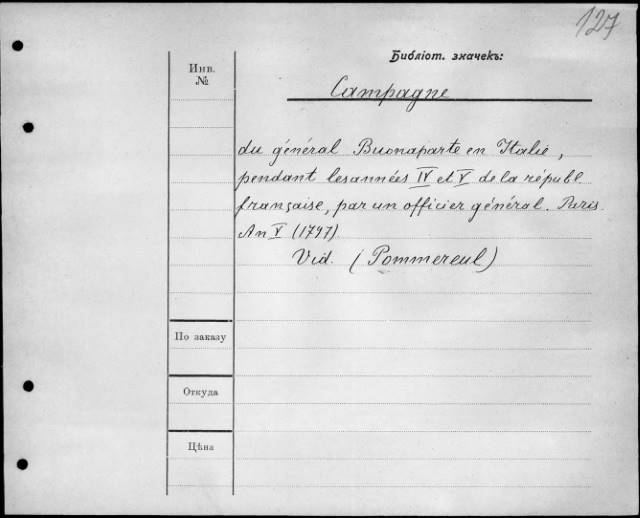 127
Библіот. значекъ:
Инв.
№
Campagne
du général Buonaparte en Italie,
pendant les années IV et V de la républ.
française, par un officier général. Paris.
An V (1797)
Vid. (Pommereul)
По заказу
Откуда
Цѣна